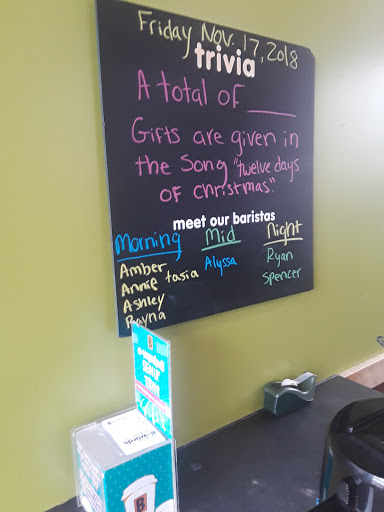 Friday Nov. 17, 2018
trivia
A total of ____
Gifts are given in
the Song "twelve days
of christmas."
meet our baristas
Morning Mid Night
Amber Alyssa Ryan
Annie tasia Spencer
Ashley
B